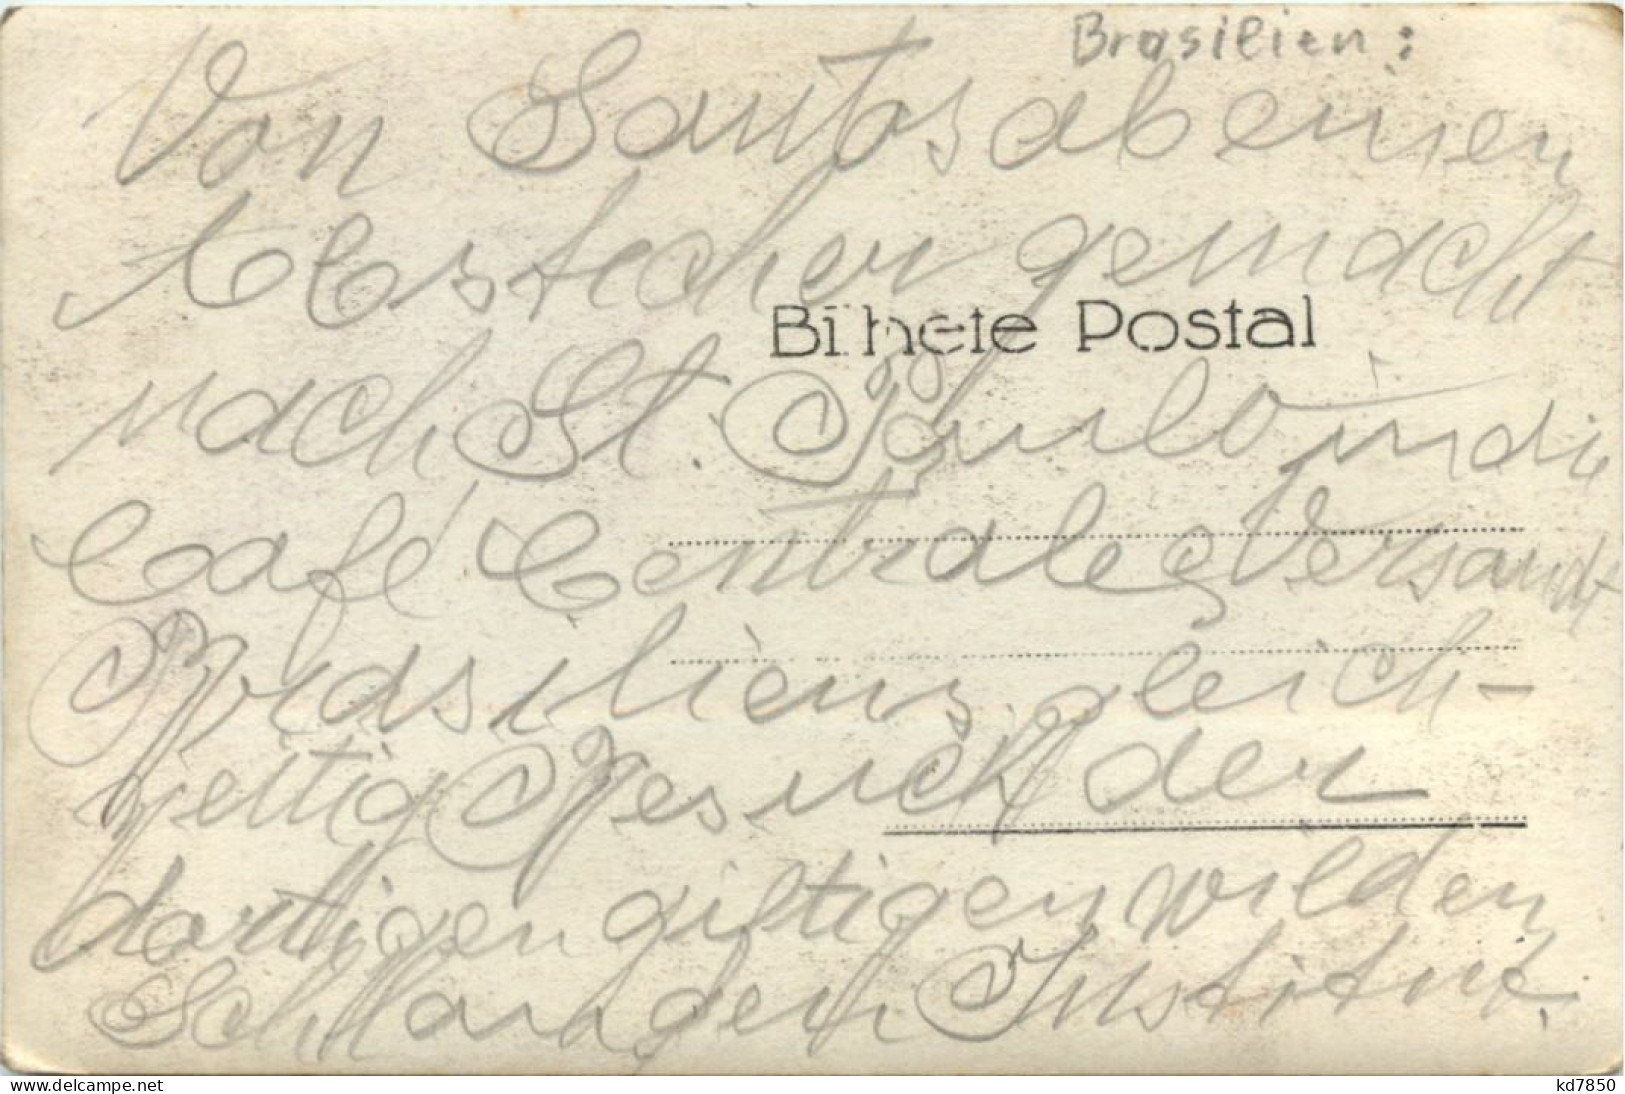 Brasilien:
Von Santos ab einen
Abstecher gemacht
Bilhete Postal
nach St. Paulo in die
Café Centrale Versandt
Brasiliens. gleich-
zeitig Besuch der
dortigen giftigen wilden
Schlangen Institut.
www.delcampe.net
kd7850